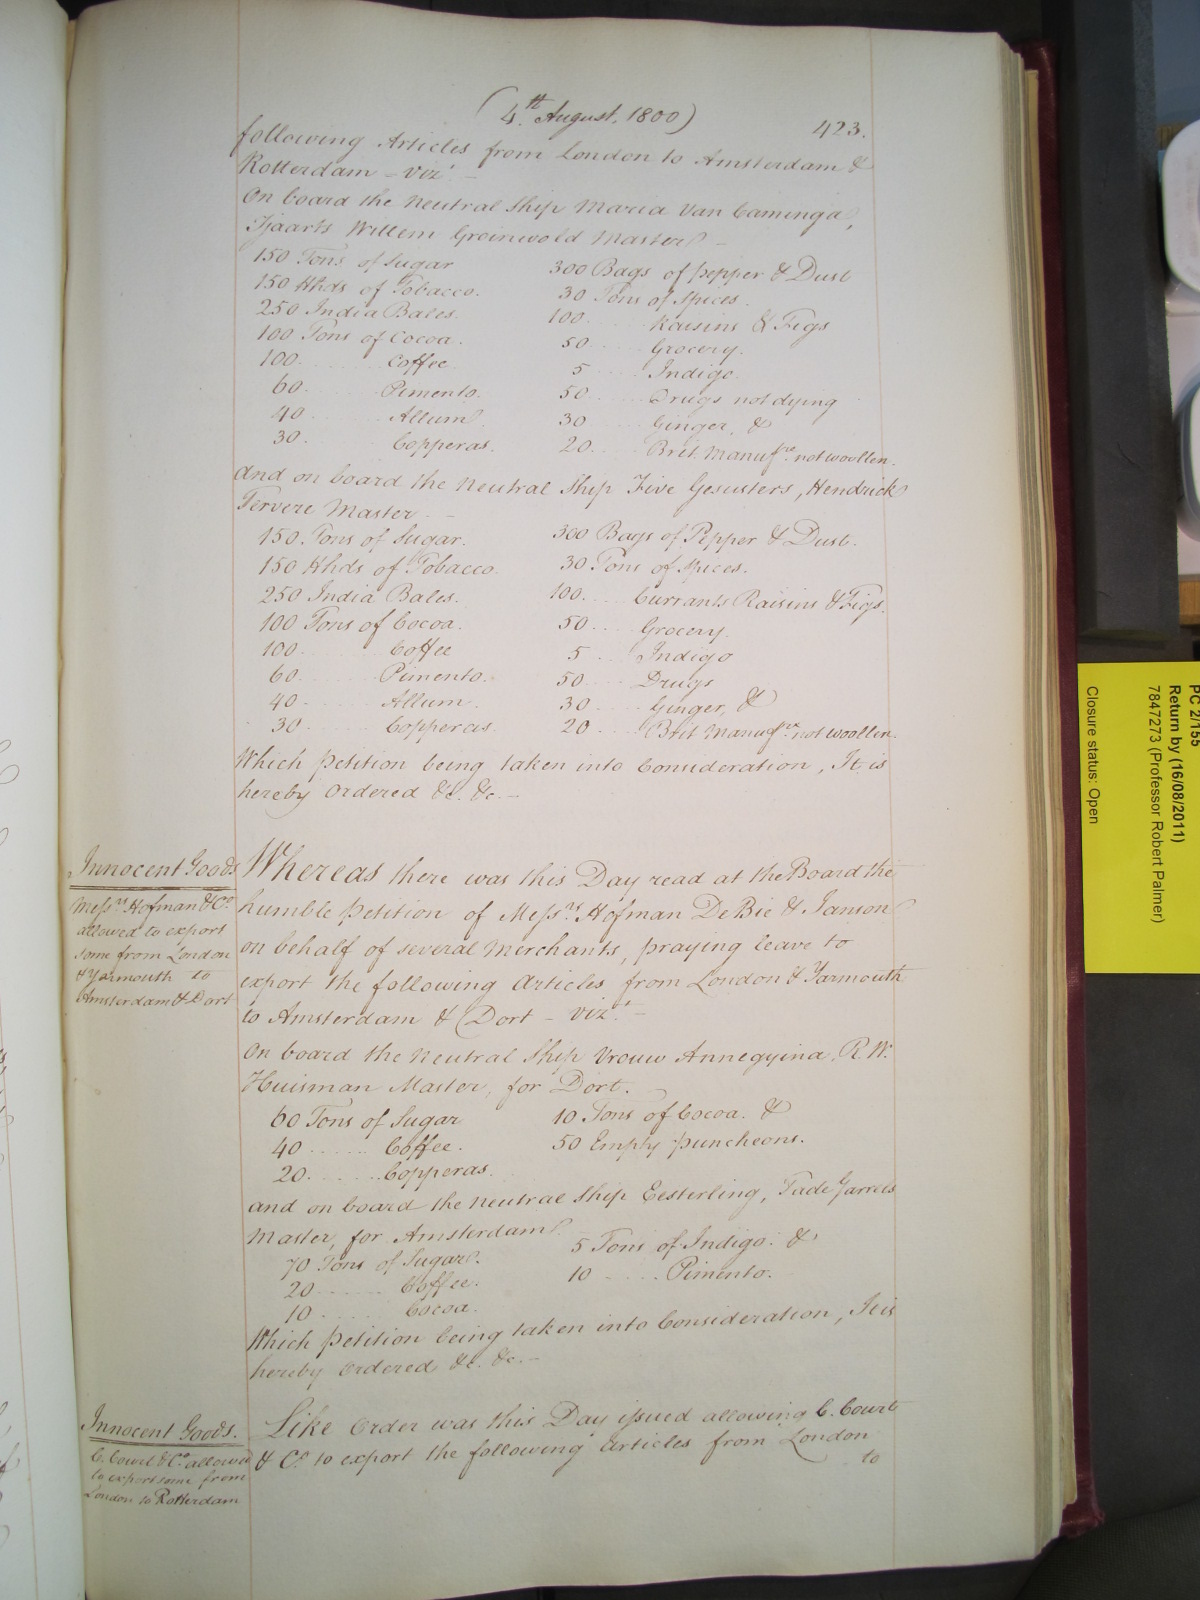 (4th August, 1800)
423.
following Articles from London to Amsterdam &
Rotterdam – viz.t –
On board the Neutral Ship Maria Van Caminga,
Tjaarts Willem Greinwold Master –
150 Tons of Sugar
150 Hhds of Tobacco.
250 India Bales.
100 Tons of Cocoa.
100 ........ Coffee
60 ........ Pimento.
40 ........ Allum
30. ........ Copperas.
300 Bags of pepper & Dust
30 Tons of Spices.
100 ..... Raisins & Figs
50 ..... Grocery.
5 ..... Indigo.
50 ..... Drugs not dying
30 ..... Ginger, &
20 ..... Brit. Manufre. not woollen.
And on board the Neutral Ship Five Gesusters, Hendrick
Tervere Master –
150. Tons of Sugar.
150 Hhds of Tobacco.
250 India Bales.
100 Tons of Cocoa.
100 ........ Coffee
60 ........ Pimento.
40 ........ Allum.
30 ........ Copperas
300 Bags of Pepper & Dust.
30 Tons of Spices.
100. .... Currants Raisins & Figs.
50 ..... Grocery.
5 ..... Indigo
50 ..... Drugs
30 ..... Ginger, &
20 ..... Brit Manufre. not woollen.
Which petition being taken into Consideration, It is
hereby Ordered &c. &c. –
Innocent Goods
Messrs. Hofman & Co.
allowed to export
some from London
& Yarmouth to
Amsterdam & Dort
Whereas there was this Day read at the Board the
humble petition of Messrs. Hofman De Bie & Janson
on behalf of several Merchants, praying leave to
export the following Articles from London & Yarmouth
to Amsterdam & Dort – viz.t –
On board the Neutral Ship Vrouw Annegyina, R. W.
Huisman Master, for Dort.
60 Tons of Sugar
40 ...... Coffee.
20. ...... Copperas.
10 Tons of Cocoa. &
50 Empty puncheons.
and on board the Neutral Ship Eesterling, Tade Garrels
Master, for Amsterdam
70 Tons of Sugar.
20 ...... Coffee.
10 ...... Cocoa.
5 Tons of Indigo. &
10 ...... Pimento.
Which petition being taken into Consideration, It is
hereby Ordered &c. &c. –
Innocent Goods.
C. Court & Co. allowed
to export some from
London to Rotterdam
Like Order was this Day issued allowing C. Court
& Co. to export the following Articles from London
to
PC 2/155
Return by (16/08/2011)
7847273 (Professor Robert Palmer)
Closure status: Open